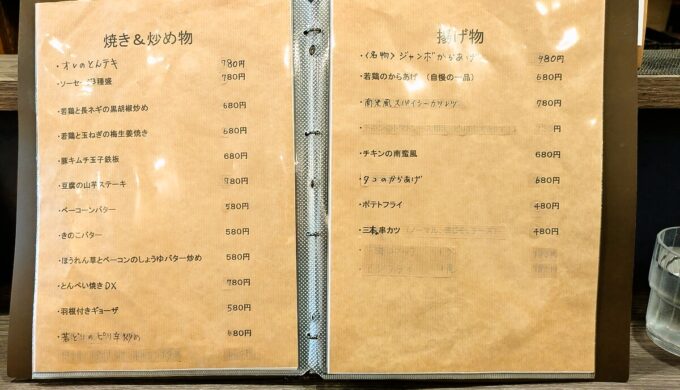 焼き&炒め物
・オレのとんテキ 780円
・ソーセージ3種盛 780円
・若鶏と長ネギの黒胡椒炒め 680円
・若鶏と玉ねぎの梅生姜焼き 680円
・豚キムチ玉子鉄板 680円
・豆腐の山芋ステーキ 780円
・ベーコーンバター 580円
・きのこバター 580円
・ほうれん草とベーコンのしょうゆバター炒め 580円
・とんぺい焼きDX 780円
・羽根付きギョーザ 580円
・若どりのピリ辛炒め 680円
揚げ物
・〈名物〉ジャンボからあげ 980円
・若鶏のからあげ (自慢の一品) 680円
・南米風スパイシーカツレツ 780円
・チキンの南蛮風 680円
・タコのからあげ 680円
・ポテトフライ 480円
・三本串カツ 480円